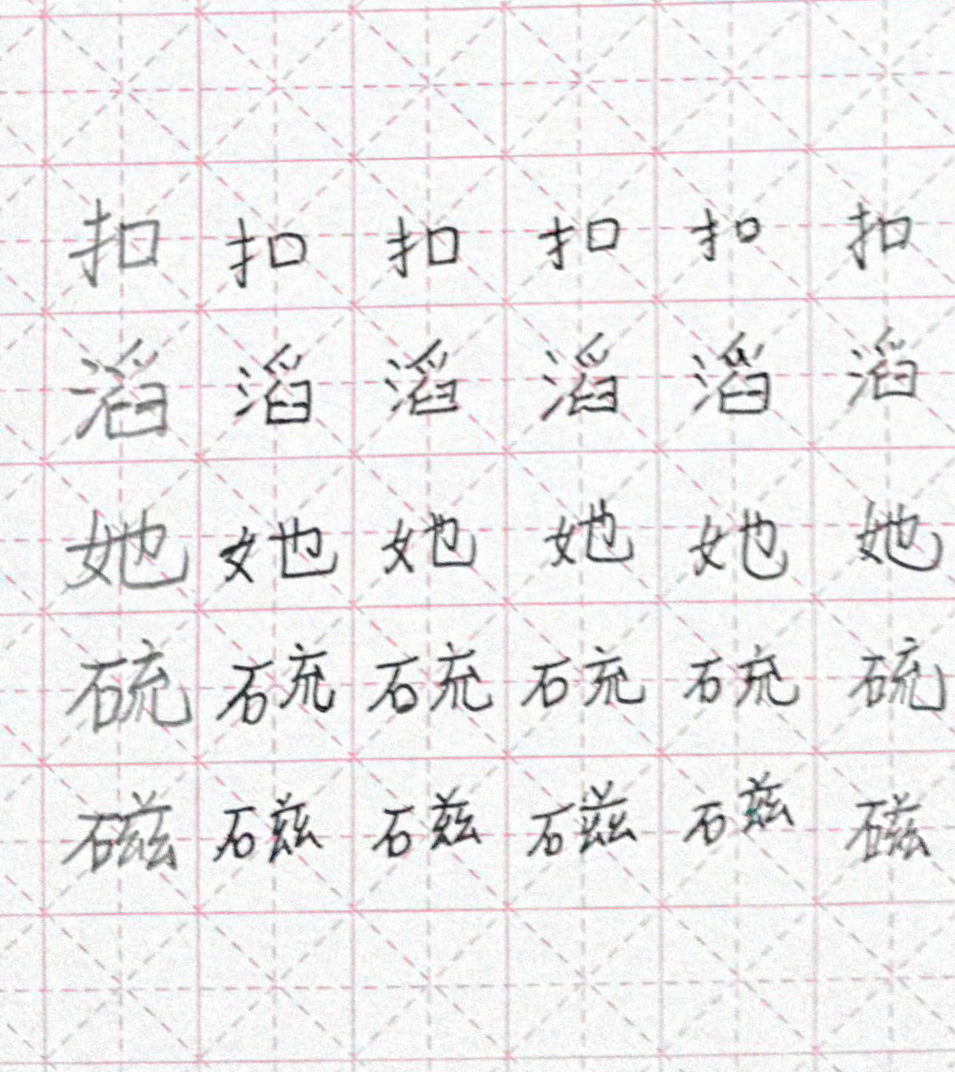 扣扣扣扣扣扣
滔滔滔滔滔滔
她她她她她她
硫硫硫硫硫硫
磁磁磁磁磁磁